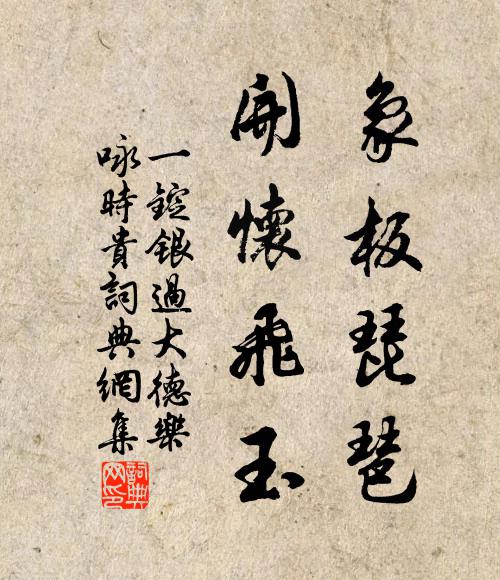 象板琵琶
開懷飛玉
一錠銀過大德樂
咏時貴詞典網集
詞典
网印